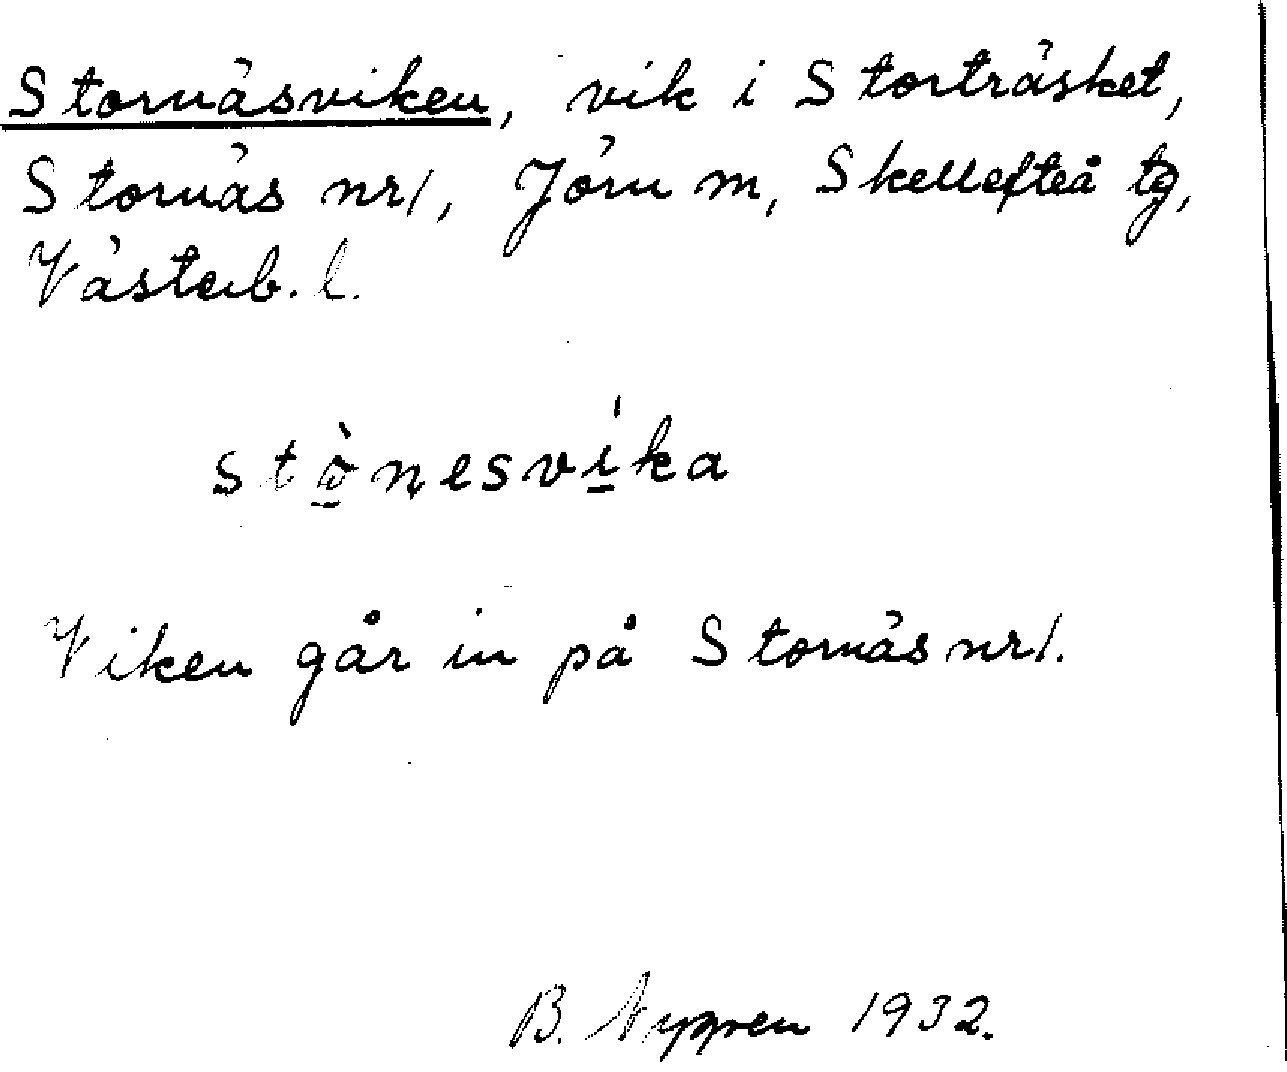 Stornäsviken, vik i Storträsket,
Stornäs nr 1, Jörn m, Skellefteå tg,
Västerb. l.
stò̱ṇesvi̱ka
Viken går in på Stornäs nr 1.
B. Nygren 1932.